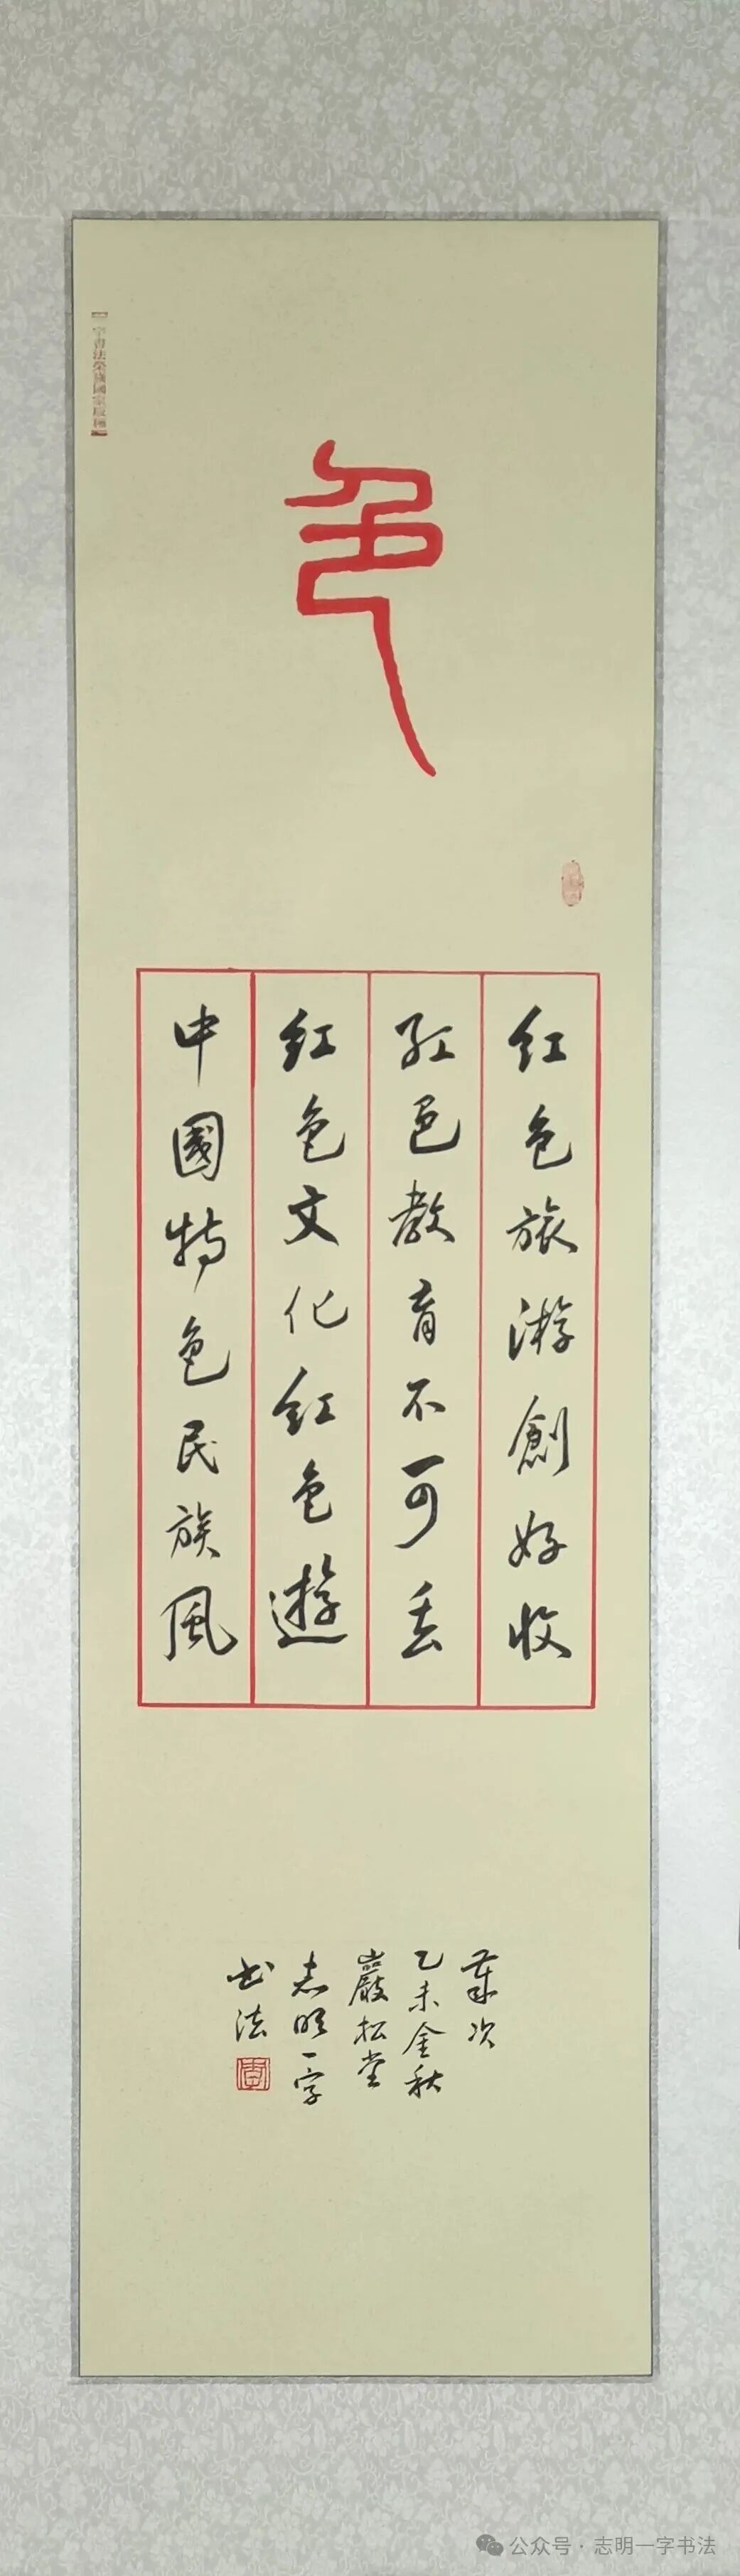 色
红色旅游創好收
红色教育不可丢
红色文化红色遊
中國特色民族風
岁次
乙未金秋
巖松堂
志明一字
书法
公众号·志明一字书法